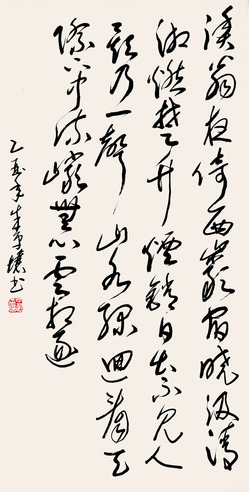 漁翁夜傍西巖宿曉汲清
湘燃楚竹煙銷日出不見人
欸乃一聲山水綠迴看天
際下中流巖上無心雲相逐
乙亥年 書